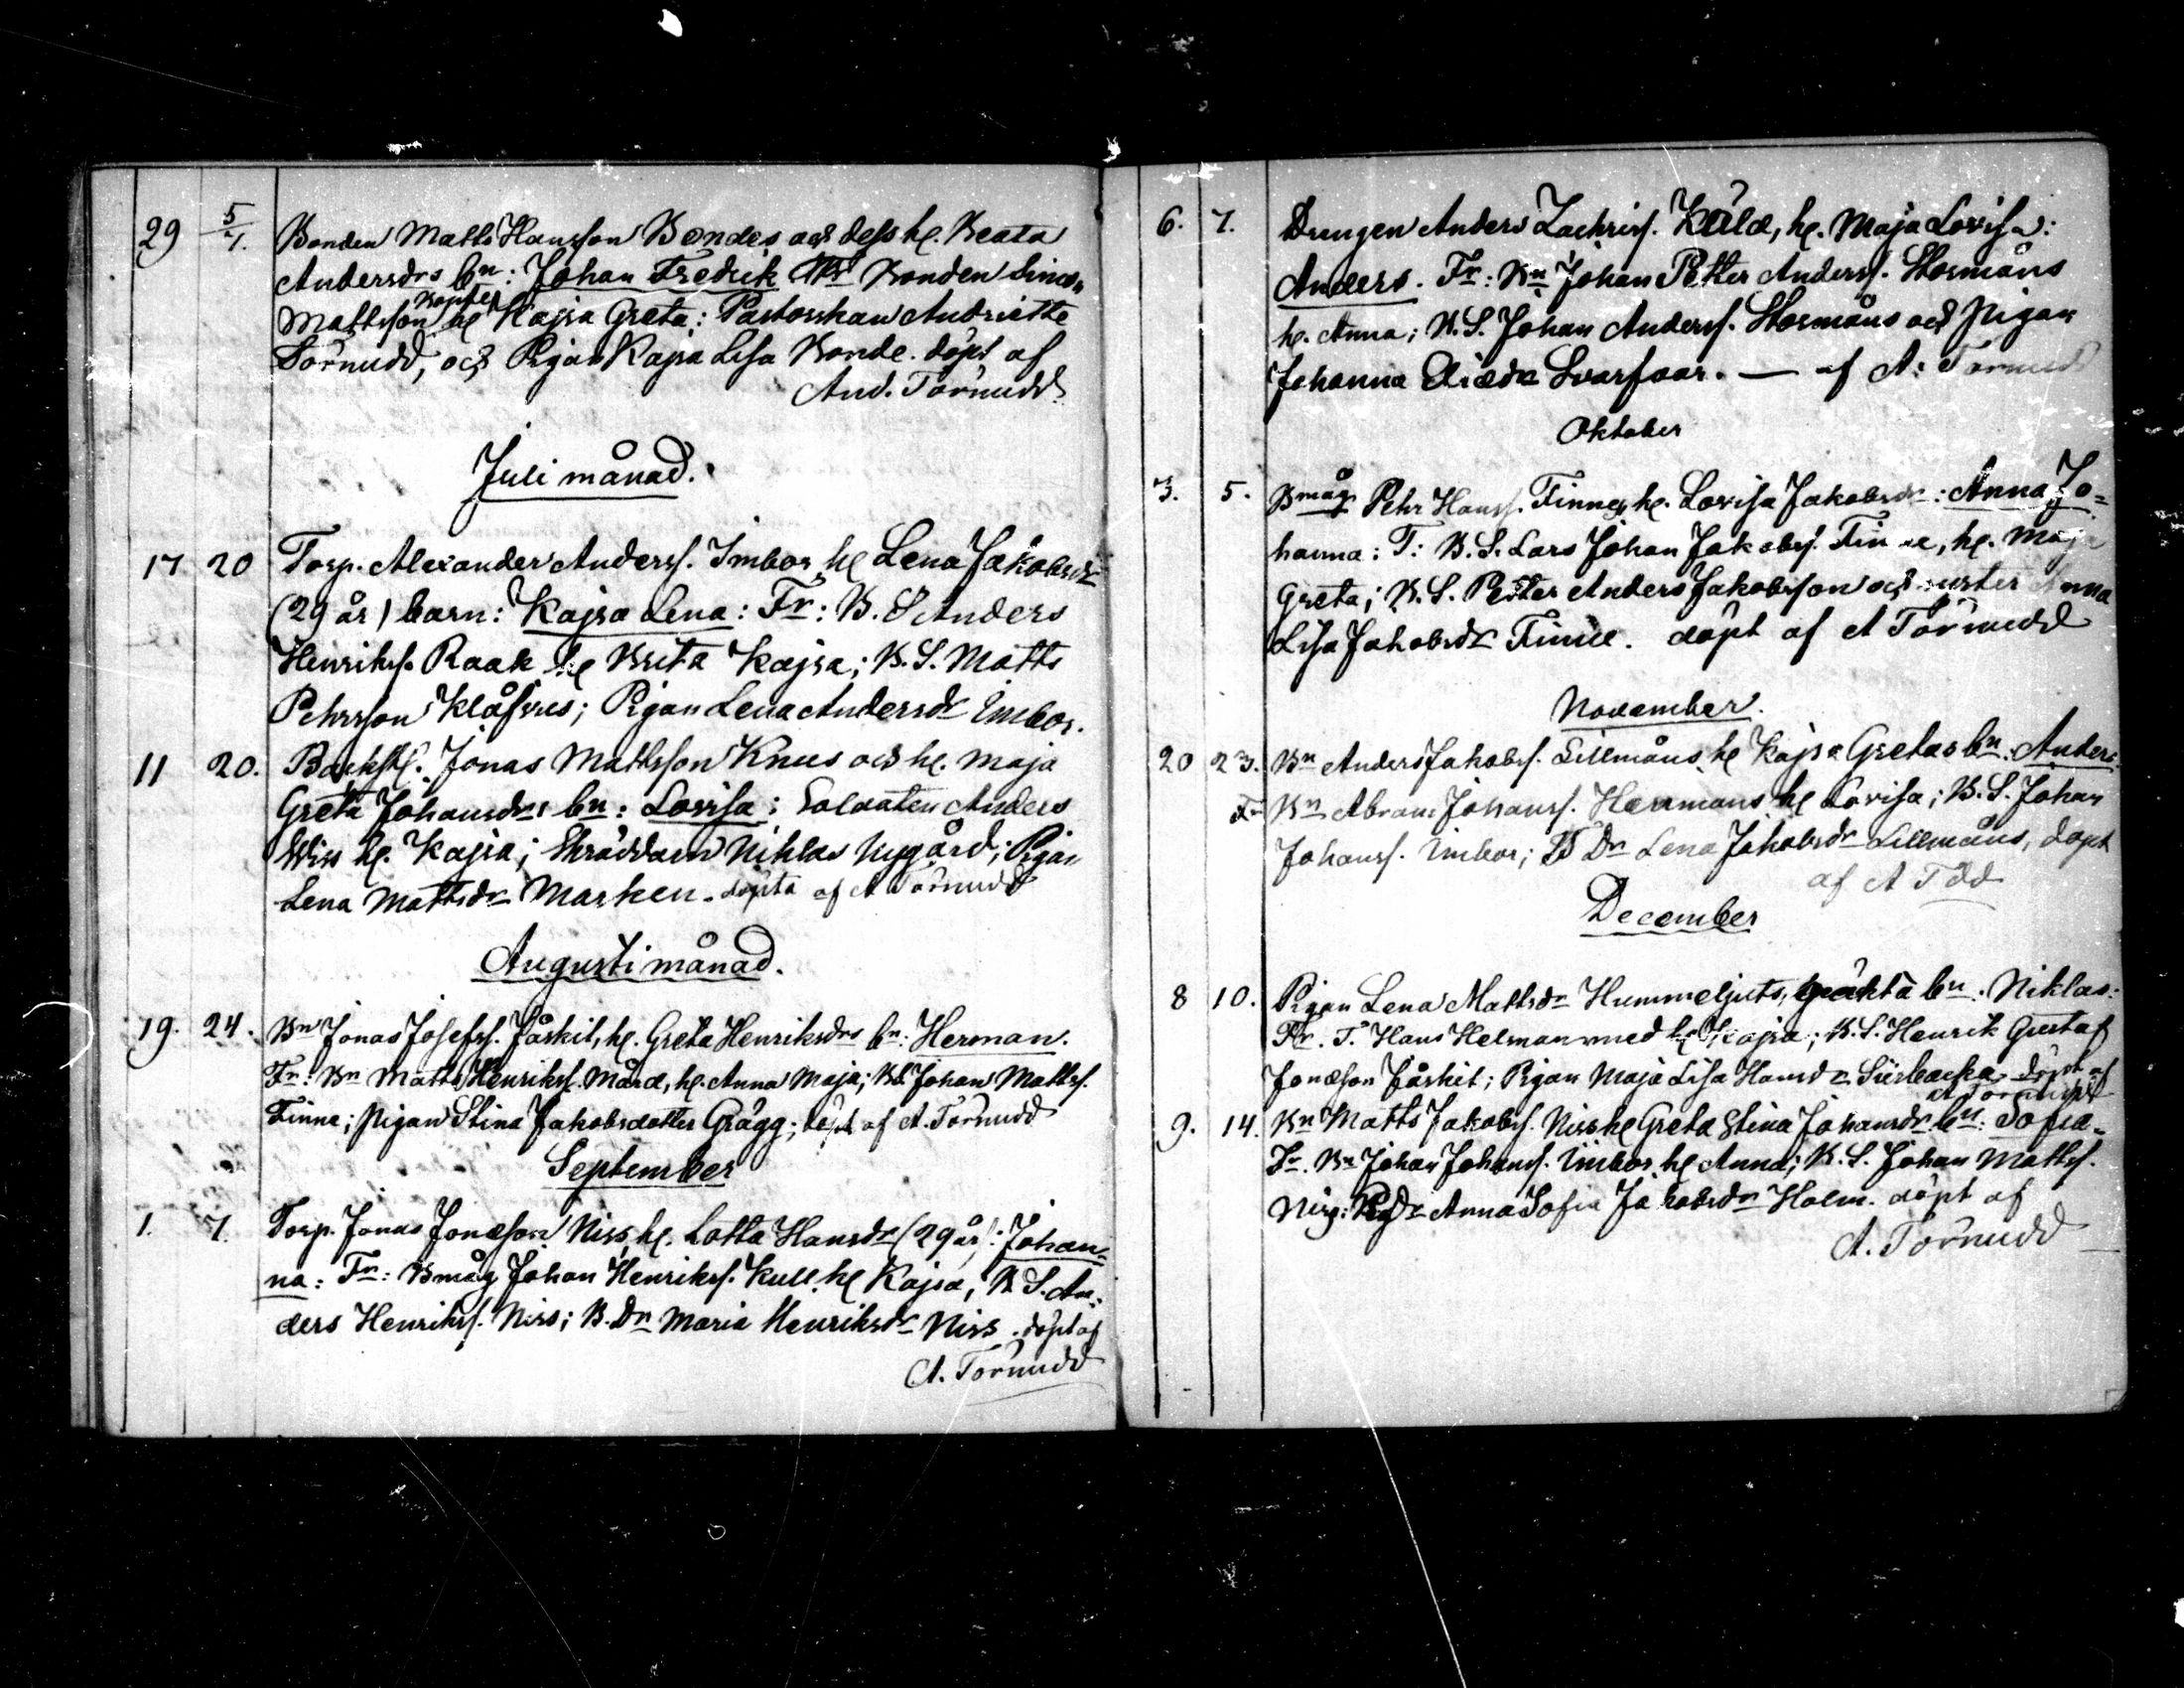 29 5/7. Bonden Matts Hansson Bondes och dess h. Beata
Andersdrs bn: Johan Fredrik Bonden Simon
Mattsson Bondes h Kajsa Greta: Pastorskan Andriette
Törnudd, och Pigan Kajsa Lisa Bonde. döpt af
And. Törnudd
Juli månad.
17 20 Torp. Alexander Anderss. Imbor, h Lena Jakobsdr
(29 år) barn: Kajsa Lena: Fr: B. S Anders
Henrikss. Raak h Brita Kajsa; B. S. Matts
Pehrsson Klåfvus; Pigan Lena Andersdr Imbor.
11 20. Backst. Jonas Mattsson Knus och h. Maja
Greta Johansdrs bn: Lovisa; Soldaten Anders
Wiss h. Kajsa; Skräddarn Niklas Nygård; Pigan
Lena Mattsdr Marken. döpta af A Törnudd
Augusti månad.
19. 24. Bn Jonas Josefss. Jåskit, h. Greta Henriksdrs bn: Herman.
Fr: Bn Matts Henrikss. Mård, h. Anna Maja; BS Johan Mattss.
Finne; Pigan Stina Jakobsdotter Grågg; döpt af A. Törnudd
September
1. 7. Torp. Jonas Jonasson Niss, h. Lotta Hansdr (29 år): Johan-
na: Fr: Bmåg Johan Henrikss. Kull, h Kajsa, B. S. An-
ders Henrikss. Niss; B. Dr Maria Henriksdr Niss. döpt af
A. Törnudd
6. 7. Drengen Anders Zachriss. Käld, h. Maja Lovisa:
Anders. Fr: Bn Johan Petter Anderss. Stormåns
h. Anna; B. S. Johan Anderss. Stormåns och Pigan
Johanna Svarfvar. — af A: Törnudd
Oktober
3. 5. Bmåg Pehr Hanss. Finne, h. Lovisa Jakobsdr: Anna Jo=
hanna: F: B. S. Lars Johan Jakobss. Finne, h. Maja
Greta; B. S. Petter Anders Jakobsson och Anna
Lisa Jakobsdr Finne. döpt af A Törnudd
November.
20 23. Bn Anders Jakobss. Lillmåns, h Kajsa Gretas bn: Anders.
Fr Bn Abram Johanss. Hermans h Lovisa; B. S. Johan
Johanss. Imbor; B Dr Lena Jakobsdr Lillmåns, döpt
af A Tdd
December
8 10. Pigan Lena Mattsdr Hummeljuts, oäkta bn: Niklas:
Fr. T. Hans Helman med h Kajsa; B. S. Henrik Gustaf
Jonasson Jåskit; Pigan Maja Lisa Hansdr Sürbacka döpt af
A Törnudd
9. 14. Bn Matts Jakobss. Niss h Greta Stina Johansdr bn: Sofia.
Fr. Bn Johan Johanss. Imbor, h Anna; B. S. Johan Mattss.
Niss: Anna Sofia Jakobsdr Holm. döpt af
A. Törnudd